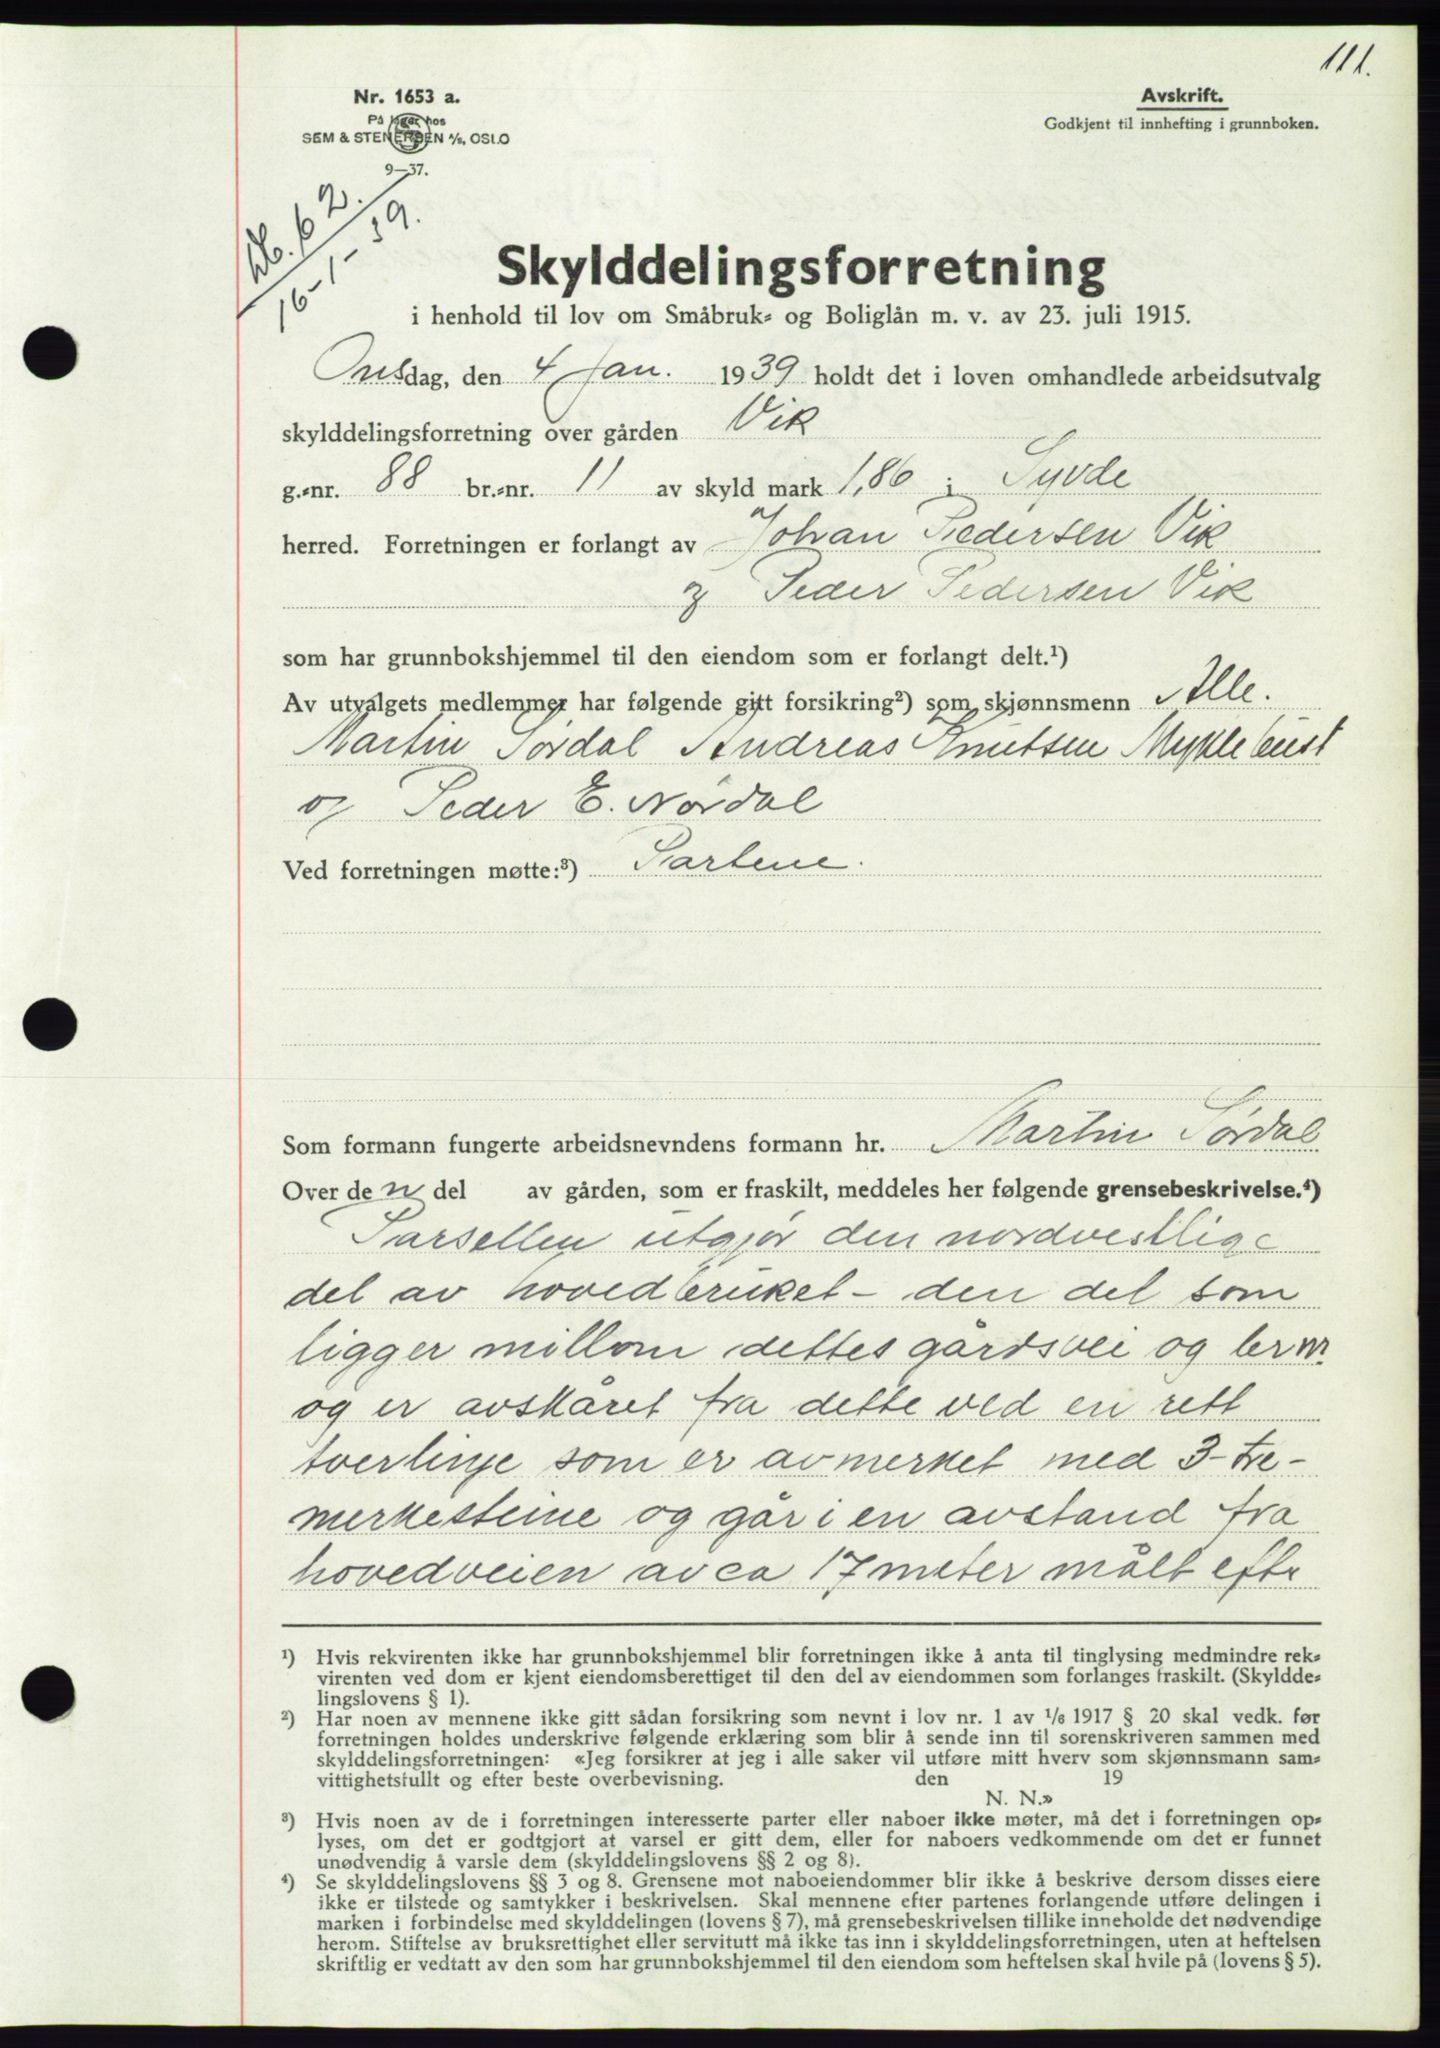 111.
Nr. 1653 a.
På lager hos
SEM & STENERSEN A/S, OSLO
9—37.
Avskrift.
Godkjent til innhefting i grunnboken.
Db. 62.
16-1-39.
Skylddelingsforretning
i henhold til lov om Småbruk- og Boliglån m. v. av 23. juli 1915.
Onsdag, den 4 Jan. 1939 holdt det i loven omhandlede arbeidsutvalg
skylddelingsforretning over gården Vik
g.-nr. 88 br.-nr. 11 av skyld mark 1,86 i Syvde
herred. Forretningen er forlangt av Johan Pedersen Vik
og Peder Pedersen Vik
som har grunnbokshjemmel til den eiendom som er forlangt delt.¹)
Av utvalgets medlemmer har følgende gitt forsikring²) som skjønnsmenn Alle.
Martin Sørdal Andreas Knutsen Myklebust
og Peder E. Nordal
Ved forretningen møtte:³) Partene.
Som formann fungerte arbeidsnevndens formann hr. Martin Sørdal
Over den del av gården, som er fraskilt, meddeles her følgende grensebeskrivelse.⁴)
Parsellen utgjør den nordvestlige
del av hovedbruket - den del som
ligger millom dettes gårdsvei og br nr.
og er avskåret fra dette ved en rett
tverlinje som er avmerket med 3- tre-
merkesteine og går i en avstand fra
hovedveien av ca 17 meter målt efter
¹) Hvis rekvirenten ikke har grunnbokshjemmel blir forretningen ikke å anta til tinglysing medmindre rek-
virenten ved dom er kjent eiendomsberettiget til den del av eiendommen som forlanges fraskilt. (Skyldde-
lingslovens § 1).
²) Har noen av mennene ikke gitt sådan forsikring som nevnt i lov nr. 1 av 1/6 1917 § 20 skal vedk. før
forretningen holdes underskrive følgende erklæring som blir å sende inn til sorenskriveren sammen med
skylddelingsforretningen: «Jeg forsikrer at jeg i alle saker vil utføre mitt hverv som skjønnsmann sam-
vittighetsfullt og efter beste overbevisning. den 19
N. N.»
³) Hvis noen av de i forretningen interesserte parter eller naboer ikke møter, må det i forretningen op-
lyses, om det er godtgjort at varsel er gitt dem, eller for naboers vedkommende om det er funnet
unødvendig å varsle dem (skylddelingslovens §§ 2 og 8).
⁴) Se skylddelingslovens §§ 3 og 8. Grensene mot naboeiendommer blir ikke å beskrive dersom disses eiere
ikke er tilstede og samtykker i beskrivelsen. Skal mennene efter partenes forlangende utføre delingen i
marken i forbindelse med skylddelingen (lovens § 7), må grensebeskrivelsen tillike inneholde det nødvendige
herom. Stiftelse av bruksrettighet eller servitutt må ikke tas inn i skylddelingsforretningen, uten at heftelsen
skriftlig er vedtatt av den som har grunnbokshjemmel til den eiendom som heftelsen skal hvile på (lovens § 5).